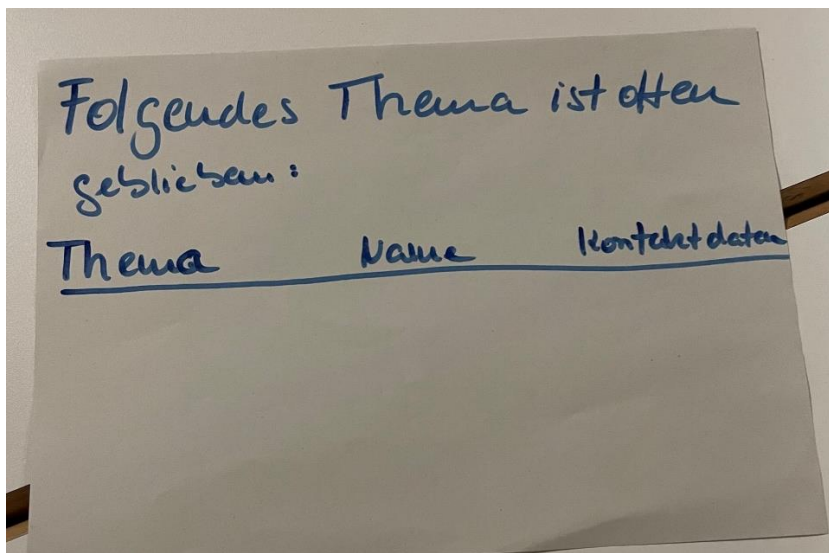 Folgendes Thema ist offen
geblieben:
Thema Name Kontaktdaten